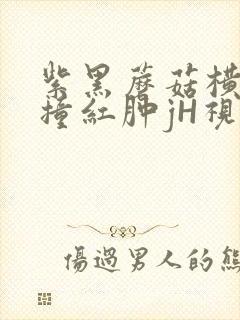 紫黑蘑菇橫
撞紅肿jH視
傷過男人的熊